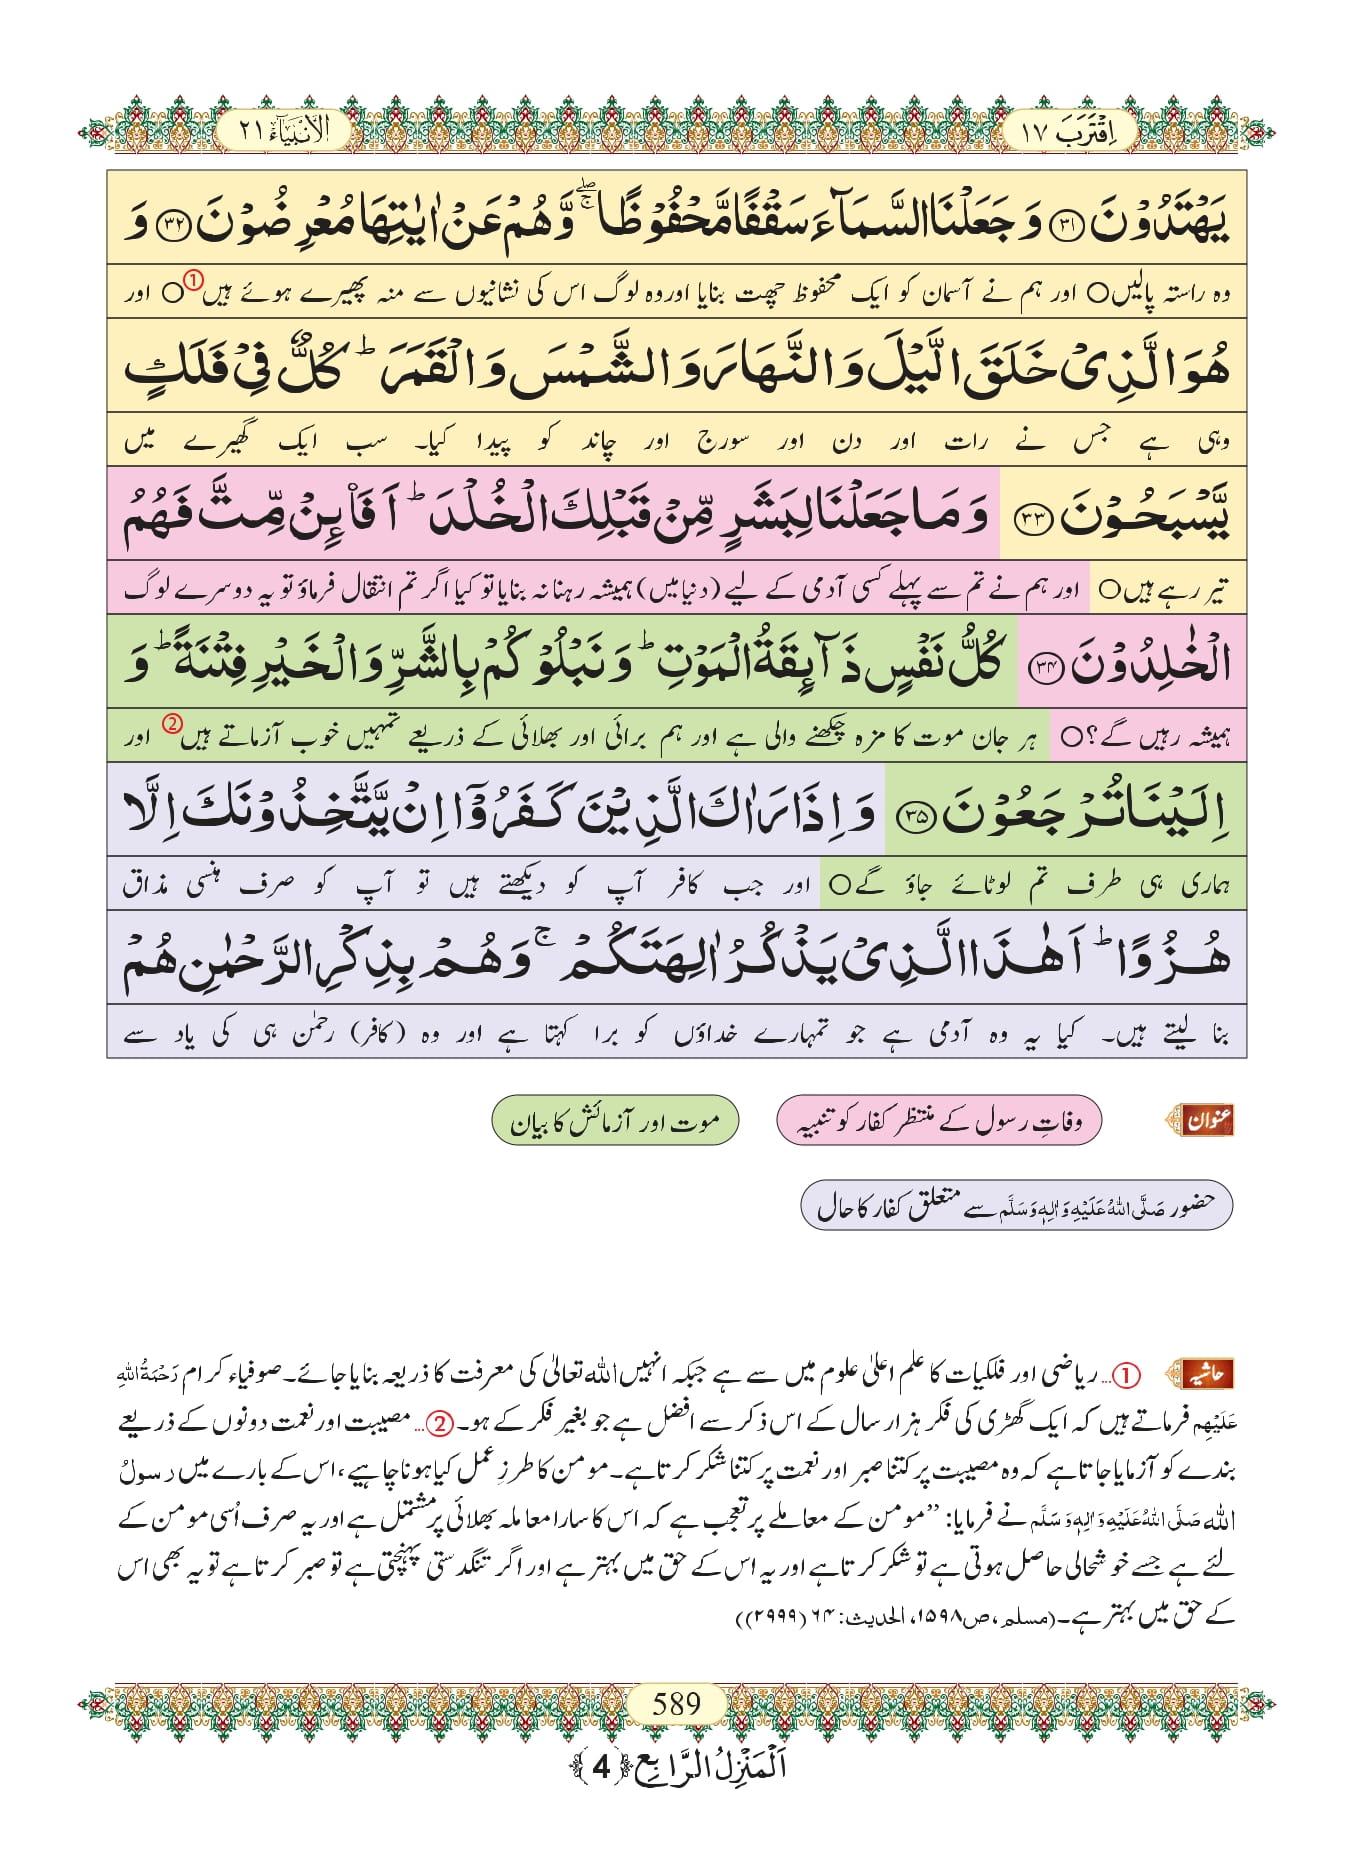 اِقْتَرَبَ ١٧
الْاَنْبِيَآء ٢١
يَهْتَدُوْنَ ﴿۳۱﴾ وَ جَعَلْنَا السَّمَآءَ سَقْفًا مَّحْفُوْظًا ۚۖ وَّ هُمْ عَنْ اٰيٰتِهَا مُعْرِضُوْنَ ﴿۳۲﴾ وَ
وہ راستہ پالیں○ اور ہم نے آسمان کو ایک محفوظ چھت بنایا اور وہ لوگ اس کی نشانیوں سے منہ پھیرے ہوئے ہیں① ○ اور
هُوَ الَّذِيْ خَلَقَ الَّيْلَ وَ النَّهَارَ وَ الشَّمْسَ وَ الْقَمَرَ ؕ كُلٌّ فِيْ فَلَكٍ
وہی ہے جس نے رات اور دن اور سورج اور چاند کو پیدا کیا۔ سب ایک گھیرے میں
يَّسْبَحُوْنَ ﴿۳۳﴾ وَ مَا جَعَلْنَا لِبَشَرٍ مِّنْ قَبْلِكَ الْخُلْدَ ؕ اَفَا۠ىِٕنْ مِّتَّ فَهُمُ
تیر رہے ہیں○ اور ہم نے تم سے پہلے کسی آدمی کے لیے (دنیا میں) ہمیشہ رہنا نہ بنایا تو کیا اگر تم انتقال فرماؤ تو یہ دوسرے لوگ
الْخٰلِدُوْنَ ﴿۳۴﴾ كُلُّ نَفْسٍ ذَآىِٕقَةُ الْمَوْتِ ؕ وَ نَبْلُوْكُمْ بِالشَّرِّ وَ الْخَيْرِ فِتْنَةً ؕ وَ
ہمیشہ رہیں گے؟○ ہر جان موت کا مزہ چکھنے والی ہے اور ہم برائی اور بھلائی کے ذریعے تمہیں خوب آزماتے ہیں② اور
اِلَيْنَا تُرْجَعُوْنَ ﴿۳۵﴾ وَ اِذَا رَاٰكَ الَّذِيْنَ كَفَرُوْۤا اِنْ يَّتَّخِذُوْنَكَ اِلَّا
ہماری ہی طرف تم لوٹائے جاؤ گے○ اور جب کافر آپ کو دیکھتے ہیں تو آپ کو صرف ہنسی مذاق
هُزُوًا ؕ اَهٰذَا الَّذِيْ يَذْكُرُ اٰلِهَتَكُمْ ۚ وَ هُمْ بِذِكْرِ الرَّحْمٰنِ هُمْ
بنا لیتے ہیں۔ کیا یہ وہ آدمی ہے جو تمہارے خداؤں کو برا کہتا ہے اور وہ (کافر) رحمٰن ہی کی یاد سے
عنوان وفاتِ رسول کے منتظر کفار کو تنبیہ موت اور آزمائش کا بیان
حضور صَلَّى اللهُ عَلَيْهِ وَاٰلِهٖ وَسَلَّم سے متعلق کفار کا حال
حاشیہ ①... ریاضی اور فلکیات کا علم اعلیٰ علوم میں سے ہے جبکہ انہیں الله تعالیٰ کی معرفت کا ذریعہ بنایا جائے۔ صوفیاء کرام رَحْمَةُ اللهِ
عَلَيْهِم فرماتے ہیں کہ ایک گھڑی کی فکر ہزار سال کے اس ذکر سے افضل ہے جو بغیر فکر کے ہو۔ ②... مصیبت اور نعمت دونوں کے ذریعے
بندے کو آزمایا جاتا ہے کہ وہ مصیبت پر کتنا صبر اور نعمت پر کتنا شکر کرتا ہے۔ مومن کا طرزِ عمل کیا ہونا چاہیے، اس کے بارے میں رسولُ
الله صَلَّى اللهُ عَلَيْهِ وَاٰلِهٖ وَسَلَّم نے فرمایا: ’’مومن کے معاملے پر تعجب ہے کہ اس کا سارا معاملہ بھلائی پر مشتمل ہے اور یہ صرف اُسی مومن کے
لئے ہے جسے خوشحالی حاصل ہوتی ہے تو شکر کرتا ہے اور یہ اس کے حق میں بہتر ہے اور اگر تنگدستی پہنچتی ہے تو صبر کرتا ہے تو یہ بھی اس
کے حق میں بہتر ہے۔ (مسلم، ص۱۵۹۸، الحدیث: ۶۴ (۲۹۹۹))
589
اَلْمَنْزِلُ الرَّابِعُ ﴿4﴾